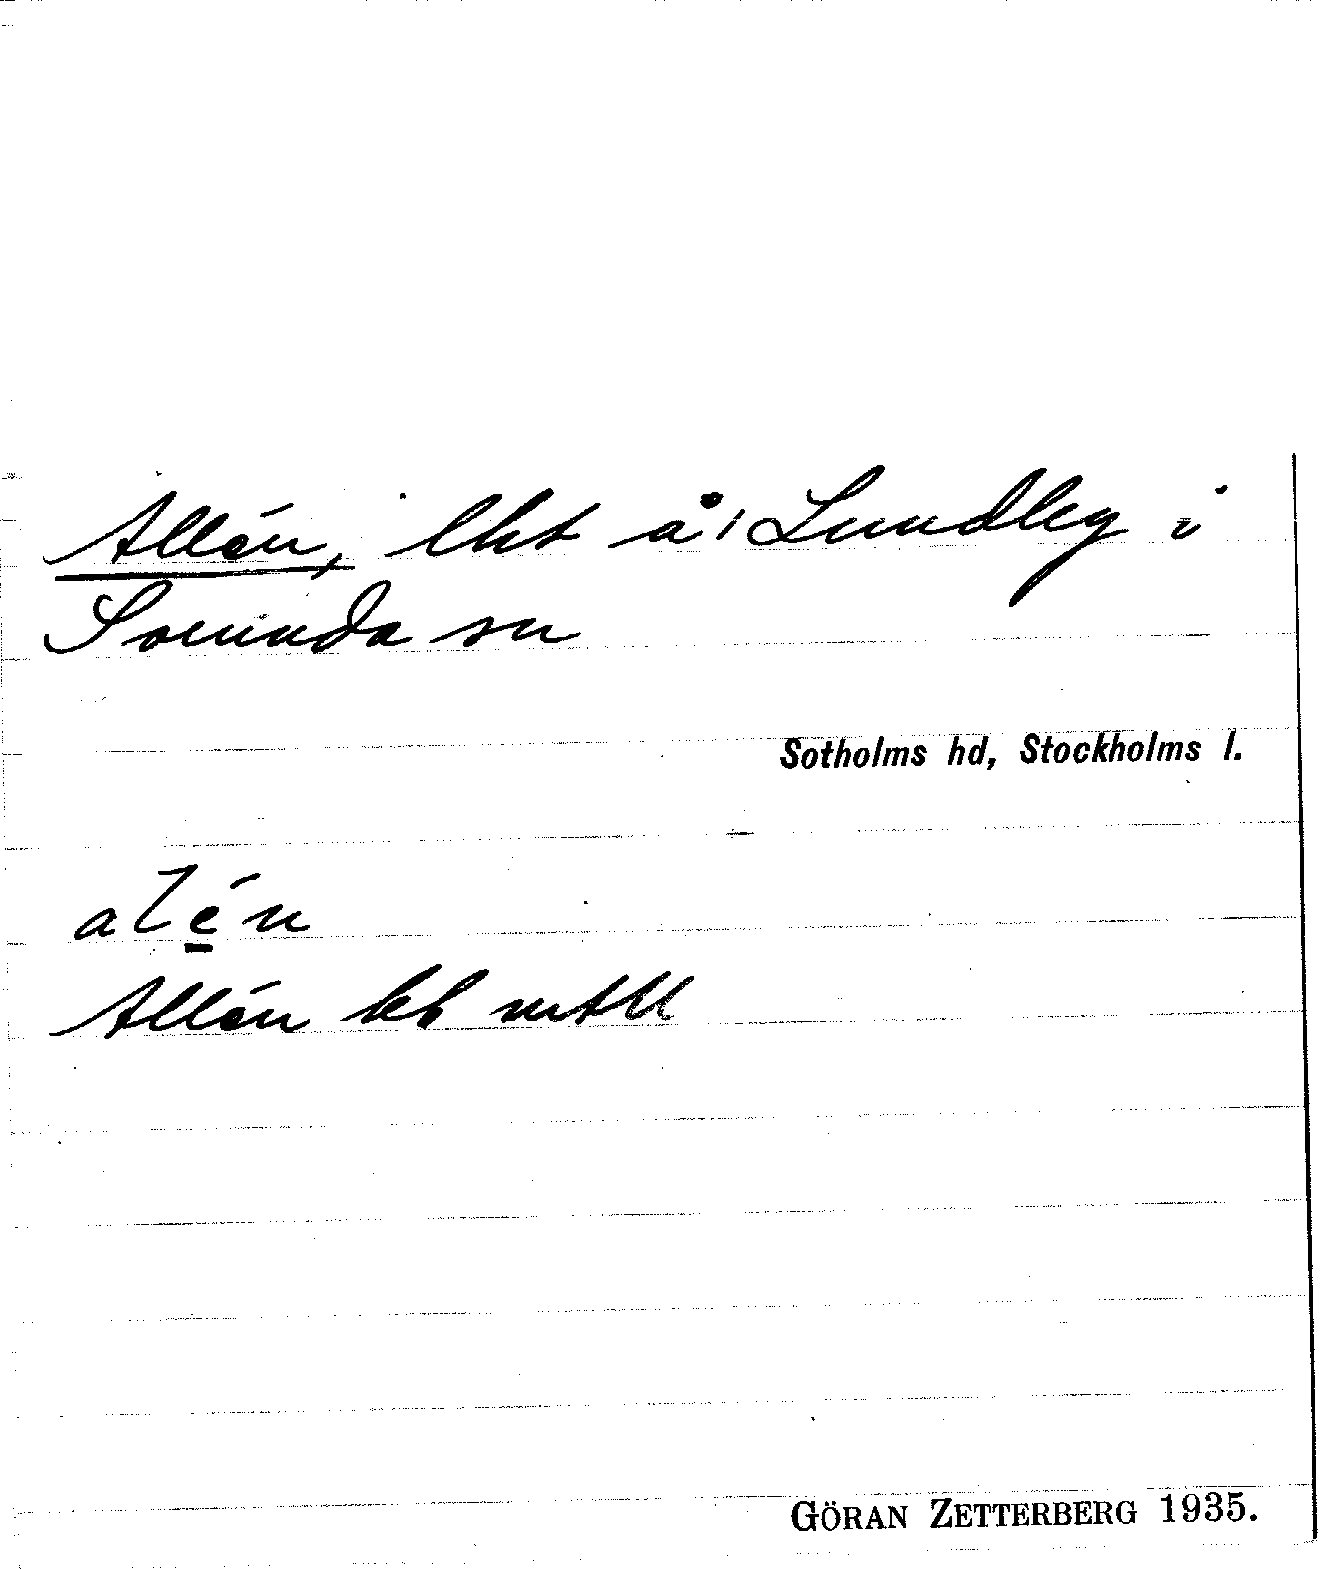 Allén, lht å Lundby i
Sorunda sn
Sotholms hd, Stockholms l.
alén
Allén
GÖRAN ZETTERBERG 1935.